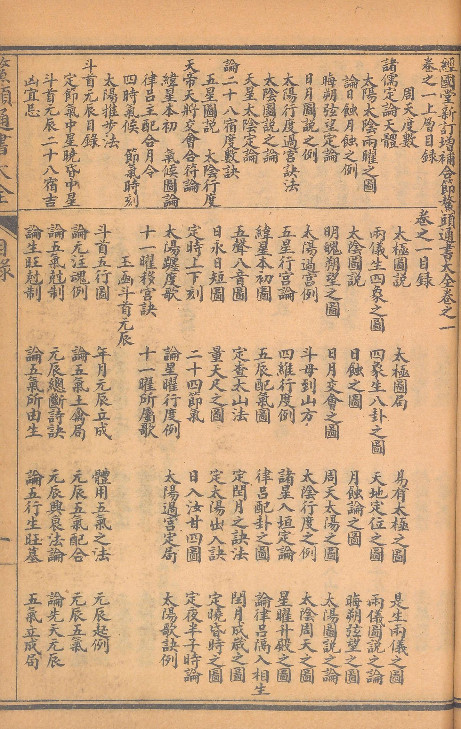 經國堂新訂增補合節鰲頭通書大全卷之一
卷之一上層目錄
周天度數
諸儒定論天體
太陽太陰兩曜之圖
論日蝕月蝕之例
晦朔弦望定論
日月圖説之例
太陽行度過宮訣法
太陰圖説之論
天星太陰定論
論二十八宿度數訣
五星圖説 太陰行度
天帝天將交會合符論
緯星本初 氣候圖論
律呂主配合月令
四時氣候 節氣時刻
太陽推步法
斗首元辰目錄
定節氣中星曉昏中星
斗首元辰二十八宿吉
凶宜忌
卷之一目錄
太極圖説 太極圖局 易有太極之圖 是生兩儀之圖
兩儀生四象之圖 四象生八卦之圖 天地定位之圖 兩儀圖説之論
太陰圖説 日蝕之圖 月蝕論之圖 晦朔弦望之圖
明魄朔望之圖 日月交會之圖 周天太陽之圖 太陽圖説之論
太陽過宮例 斗母到山方 太陰行度之例 太陰周天之圖
五星行宮論 四維行度例 諸星入垣定論 星曜升殿之圖
緯星本初圖 五辰配氣圖 律呂配卦之圖 論律呂隔八相生
五聲八音圖 定查太山法 定閏月之訣法 閏月成歲之圖
日永日短圖 量天尺之圖 定太陽出入訣 定曉昏時之圖
定時上下刻 二十四節氣 日入 廿四圖 定夜半子時論
太陽躔度歌 論星曜行度例 太陽過宮定局 太陽歌訣例
十一曜移宮訣 十一曜所屬歌
玉函斗首元辰
斗首五行圖 年月元辰立成 體用五氣之法 元辰起例
論元 魂例 論五氣土禽局 元辰五氣配合 元辰五氣
論五氣尅制 元辰總斷詩訣 元辰興衰法論 論先天元辰
論生旺尅制 論五氣所由生 論五行生旺墓 五氣立成局
鰲頭通書大全
目錄
一